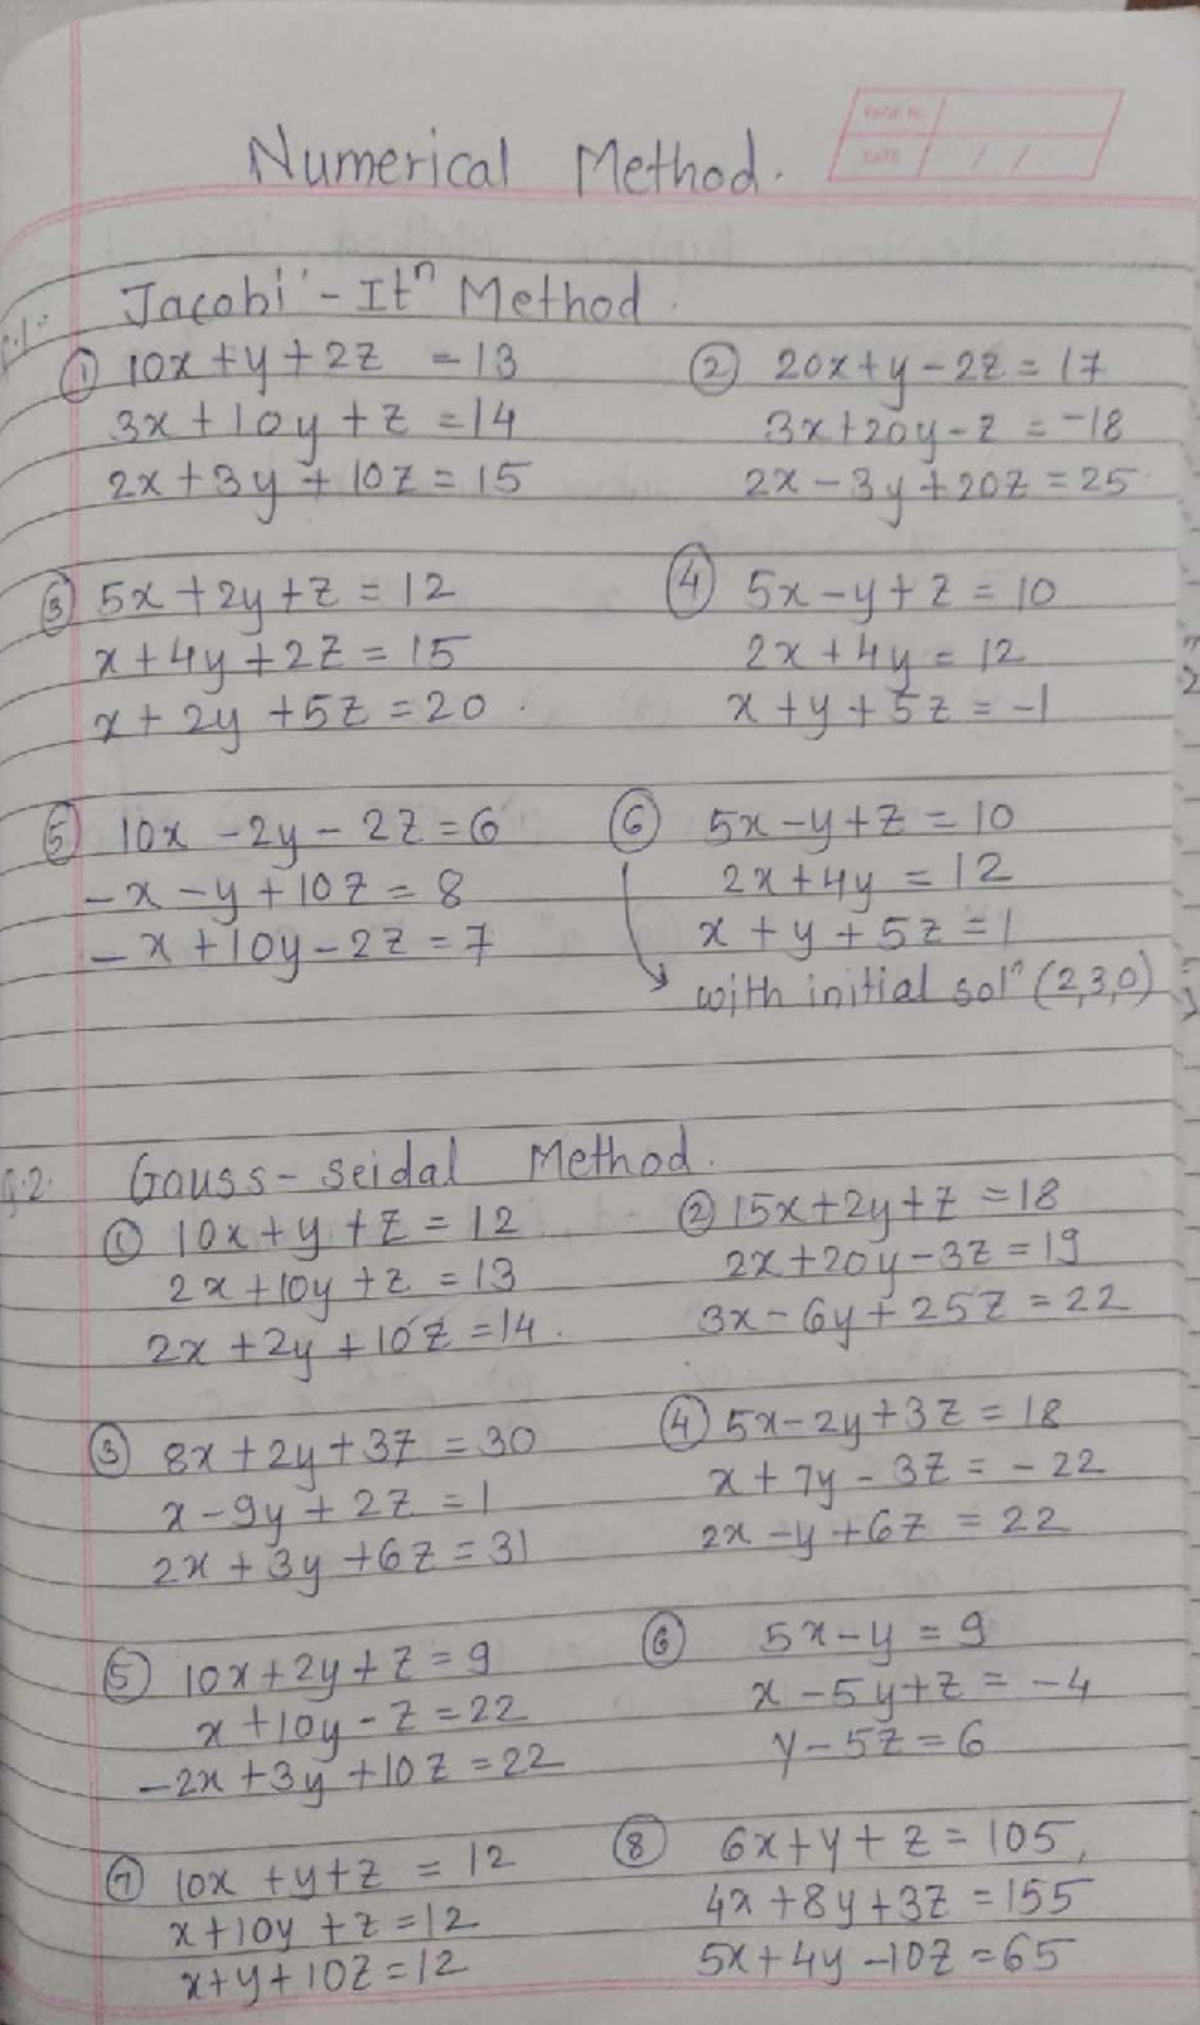 PAGE NO.
DATE / /
Numerical Method.
Jacobi - Itⁿ Method.
① 10x + y + 2z = 13
3x + 10y + z = 14
2x + 3y + 10z = 15
② 20x + y - 2z = 17
3x + 20y - z = -18
2x - 3y + 20z = 25
③ 5x + 2y + z = 12
x + 4y + 2z = 15
x + 2y + 5z = 20
④ 5x - y + z = 10
2x + 4y = 12
x + y + 5z = -1
⑤ 10x - 2y - 2z = 6
-x - y + 10z = 8
-x + 10y - 2z = 7
⑥ 5x - y + z = 10
2x + 4y = 12
x + y + 5z = 1
with initial solⁿ (2,3,0)
Q.2. Gauss - Seidal Method.
① 10x + y + z = 12
2x + 10y + z = 13
2x + 2y + 10z = 14.
② 15x + 2y + z = 18
2x + 20y - 3z = 19
3x - 6y + 25z = 22
③ 8x + 2y + 3z = 30
x - 9y + 2z = 1
2x + 3y + 6z = 31
④ 5x - 2y + 3z = 18
x + 7y - 3z = -22
2x - y + 6z = 22
⑤ 10x + 2y + z = 9
x + 10y - z = 22
-2x + 3y + 10z = 22
⑥ 5x - y = 9
x - 5y + z = -4
y - 5z = 6
⑦ 10x + y + z = 12
x + 10y + z = 12
x + y + 10z = 12
⑧ 6x + y + z = 105,
4x + 8y + 3z = 155
5x + 4y - 10z = 65